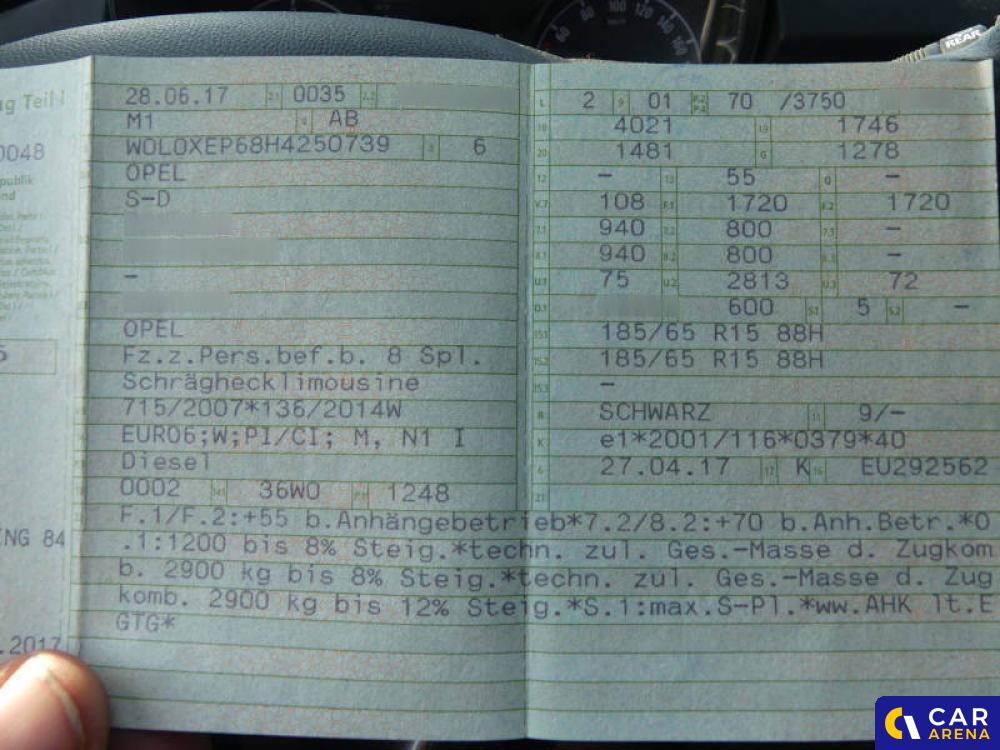 60 80 100 120 140 160
REAR
g Teil I
0048
publik
nd
NG 84
.2017
28.06.17 2.1 0035 2.2
M1 4 AB
WOLOXEP68H4250739 3 6
OPEL
S-D
–
OPEL
Fz.z.Pers.bef.b. 8 Spl.
Schräghecklimousine
715/2007*136/2014W
EURO6;W;PI/CI; M, N1 I
Diesel
0002 14.1 36W0 P.1 1248
L 2 9 01 P.2 P.4 70 /3750
18 4021 19 1746
20 1481 G 1278
12 – 13 55 Q –
V.7 108 F.1 1720 F.2 1720
7.1 940 7.2 800 7.3 –
8.1 940 8.2 800 8.3 –
U.1 75 U.2 2813 U.3 72
O.1 600 S.1 5 S.2 –
15.1 185/65 R15 88H
15.2 185/65 R15 88H
15.3 –
R SCHWARZ 11 9/–
K e1*2001/116*0379*40
6 27.04.17 17 K 16 EU292562
21
F.1/F.2:+55 b.Anhängebetrieb*7.2/8.2:+70 b.Anh.Betr.*O
.1:1200 bis 8% Steig.*techn. zul. Ges.-Masse d. Zugkom
b. 2900 kg bis 8% Steig.*techn. zul. Ges.-Masse d. Zug
komb. 2900 kg bis 12% Steig.*S.1:max.S-Pl.*ww.AHK lt.E
GTG*
CAR
ARENA